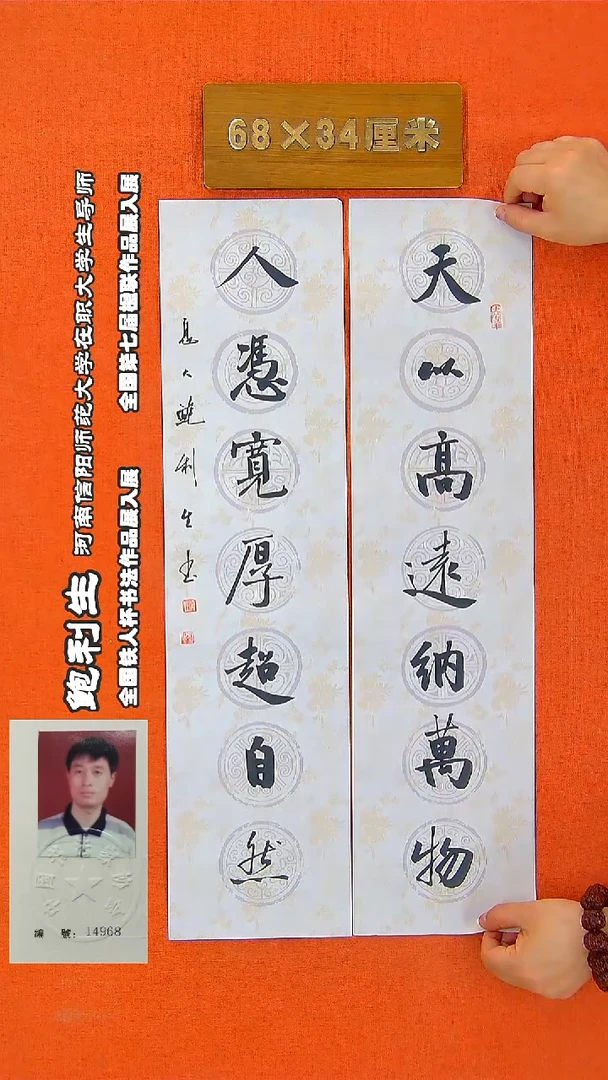 68×34厘米
天以高遠纳萬物
人憑寬厚超自然
鲍利生书
鲍利生 河南信阳师范大学在职大学生导师
全国铁人杯书法作品展入展 全国第七届楹联作品展入展
編 號：14968